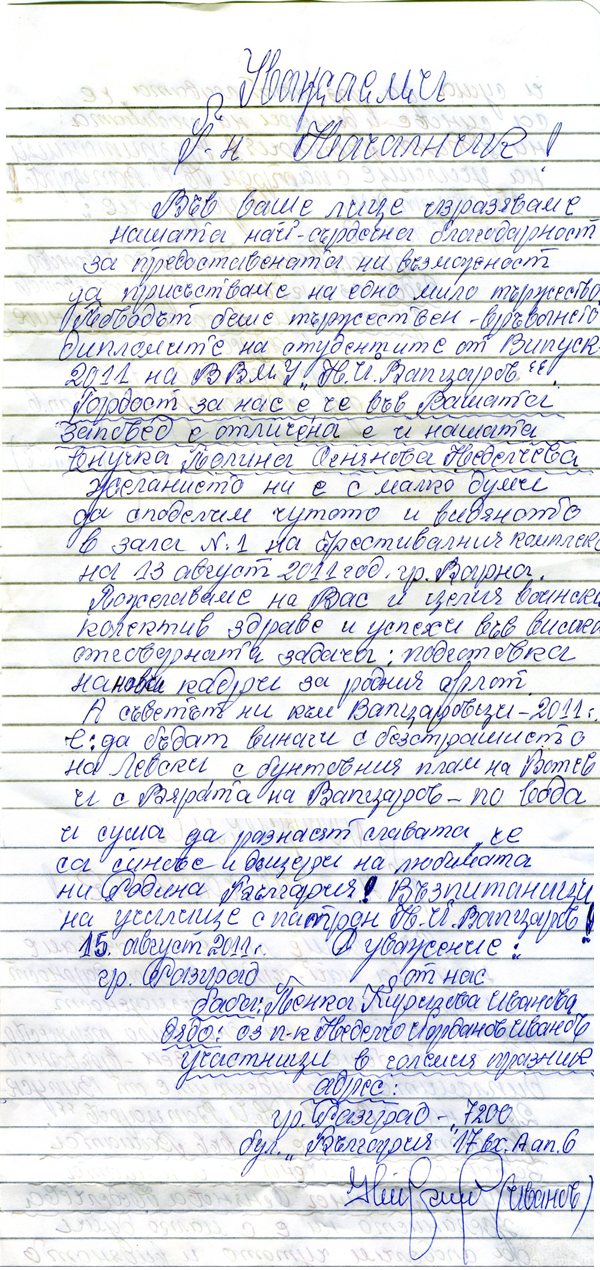 Уважаеми
Г-н Началник!
Във ваше лице изразяваме
нашата най-сърдечна благодарност
за предоставената ни възможност
да присъстваме на едно мило тържество
Поводът беше тържествен - връчването
дипломите на студентите от Випуск
2011 на ВВМУ "Н.Й. Вапцаров"
Гордост за нас е че във Вашата
заповед е отличена е и нашата
внучка Полина Сенянова Неделчева
Желанието ни е с малко думи
да споделим чутото и видяното
в зала №1 на Фестивалния комплекс
на 13 август 2011 год. гр. Варна.
Пожелаваме на Вас и целия воински
колектив здраве и успехи във високо
отговорната задача: подготовка
на нови кадри за родния флот.
А съветът ни към Вапцаровци - 2011 г.
е: да бъдат винаги с безстрашието
на Левски с бунтовния плам на Ботев
и с Вярата на Вапцаров - по вода
и суша да разнасят славата, че
са синове и дъщери на любимата
ни Родина България! Възпитаници
на училище с патрон Н.Й. Вапцаров!
15. август 2011 г. С уважение:
гр. Разград от нас
баба: Пенка Иванова
дядо: оз п-к Неделчо Йорданов Иванов
участници в големия празник
адрес:
гр. Разград - 7200
бул. "България" 17 вх. А ап. 6
(Иванов)